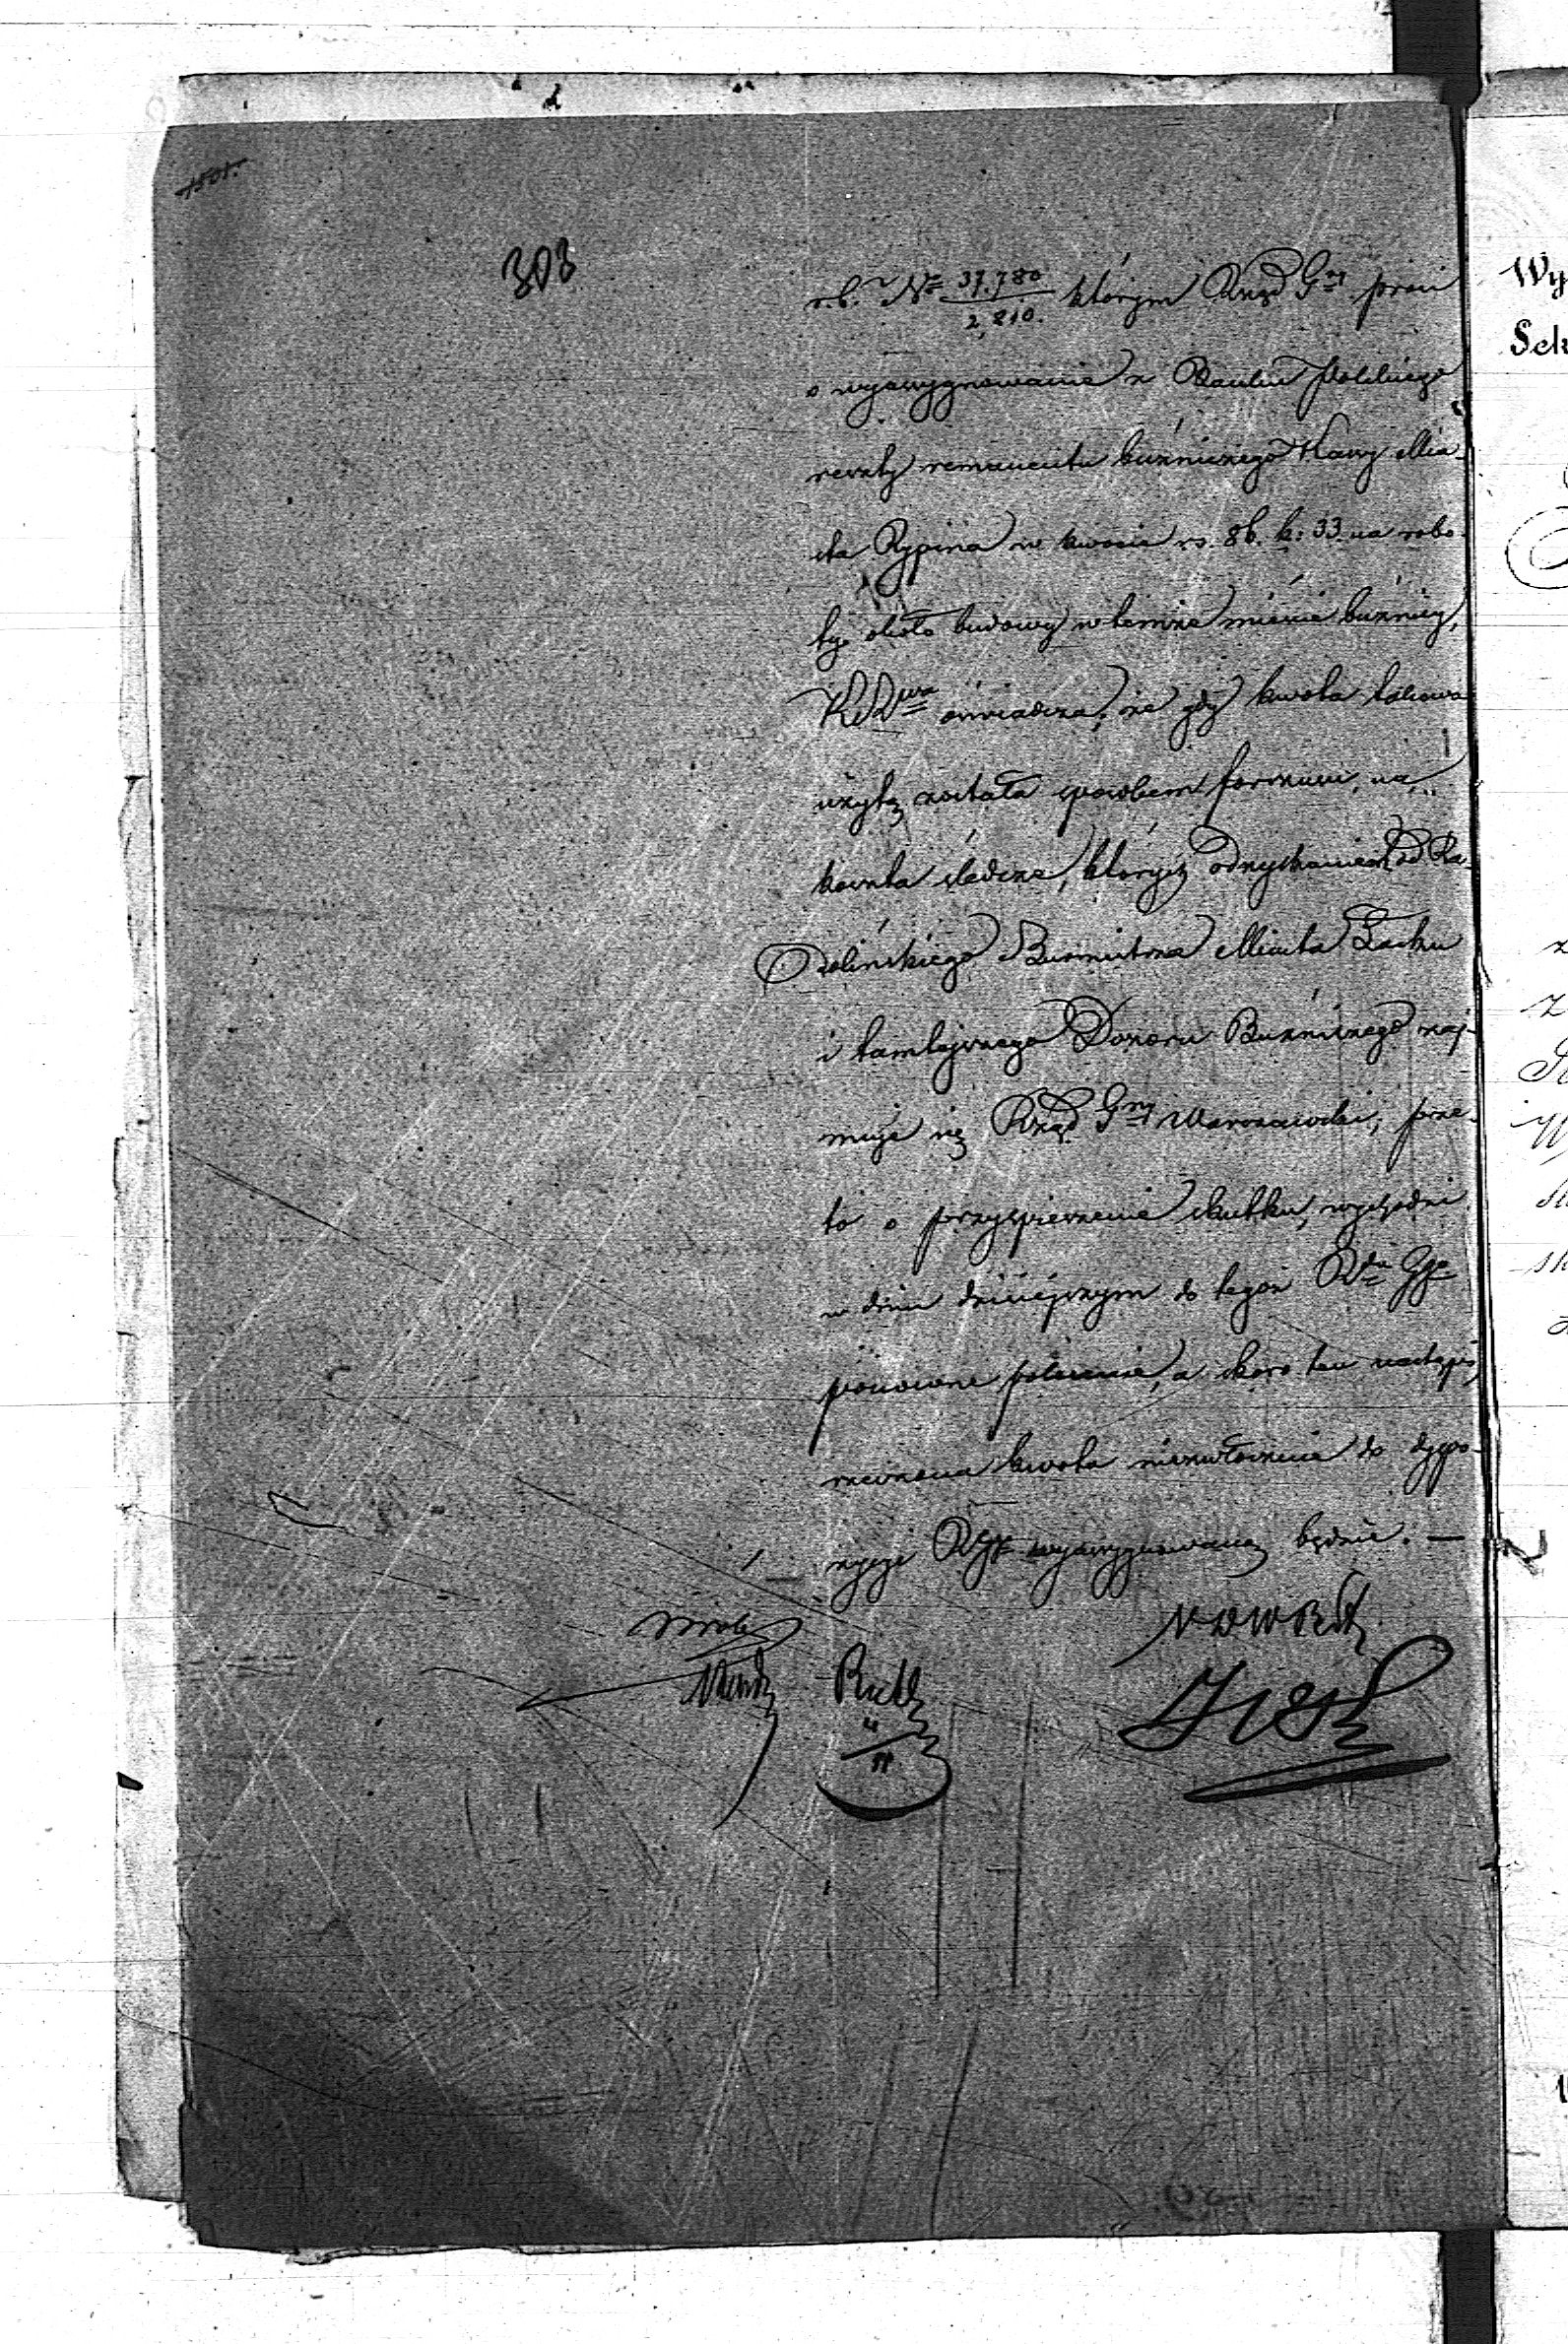 303
r.b. No 37.780/2,810. którym Rząd Gny prosi
o wyasygnowanie z Banku Polskiego
reszty remanentu bużniczego Kassy Mia-
sta Rypina w kwocie rs. 86. k: 33 na robo-
ty około budowy w temże mieście bużnicy,
oświadcza, że gdy kwota takowa
użytą została sposobem forszusu, na
koszta śledcze, których odzyskaniem od Ra-
dolińskiego Burmistrza Miasta
i tamtejszego Dozoru Bużniczego zaj-
muje się Rząd Gny Warszawski, prze-
to o przyspieszenie skutku, wychodzi
w dniu dzisiejszym do tegoż Rdu Ggo
ponowne polecenie, a skoro ten nastąpi,
rzeczona kwota niezwłocznie do dyspo-
zycyi wyasygnowaną będzie. —
Wy
Sek